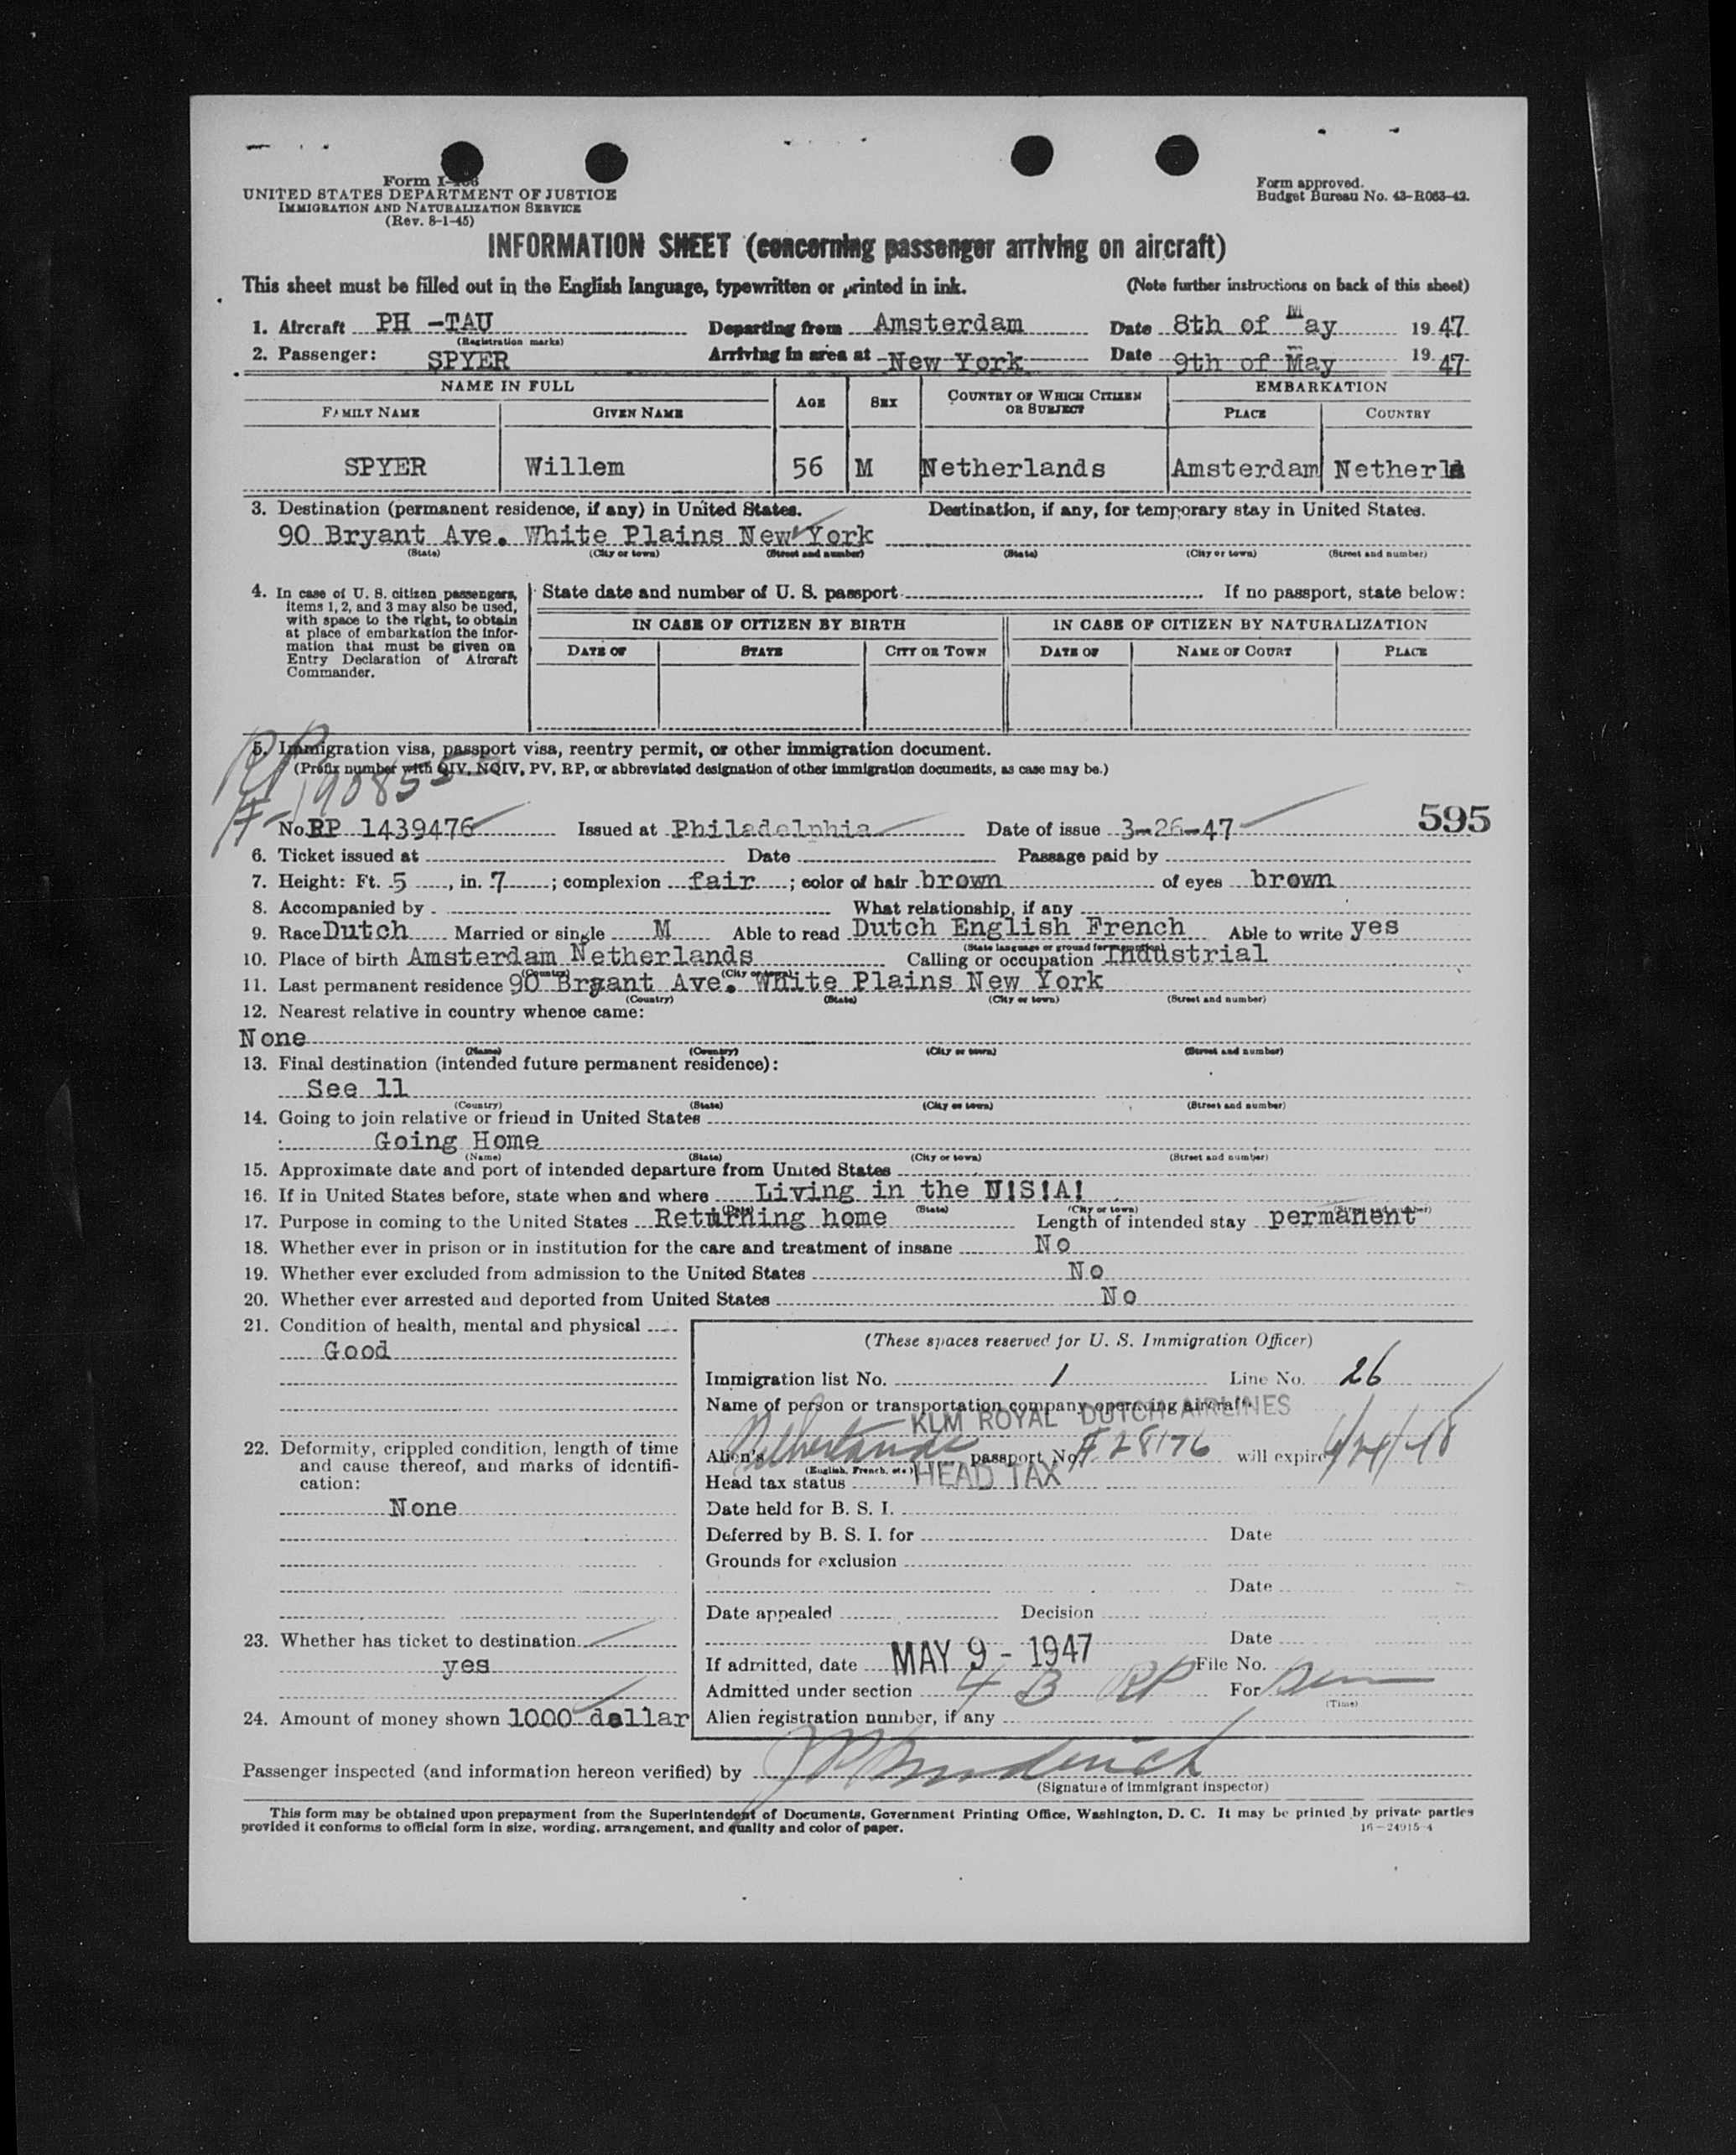 Form I-466
UNITED STATES DEPARTMENT OF JUSTICE
IMMIGRATION AND NATURALIZATION SERVICE
(Rev. 8-1-45)
Form approved.
Budget Bureau No. 43-R063-42.
INFORMATION SHEET (concerning passenger arriving on aircraft)
This sheet must be filled out in the English language, typewritten or printed in ink. (Note further instructions on back of this sheet)
1. Aircraft PH -TAU Departing from Amsterdam Date 8th of May 19 47
(Registration marks)
2. Passenger: SPYER Arriving in area at New York Date 9th of May 19 47
NAME IN FULL AGE SEX COUNTRY OF WHICH CITIZEN OR SUBJECT EMBARKATION
FAMILY NAME GIVEN NAME PLACE COUNTRY
SPYER Willem 56 M Netherlands Amsterdam Netherld
3. Destination (permanent residence, if any) in United States. Destination, if any, for temporary stay in United States.
90 Bryant Ave. White Plains New York
(State) (City or town) (Street and number) (State) (City or town) (Street and number)
4. In case of U. S. citizen passengers, items 1, 2, and 3 may also be used, with space to the right, to obtain at place of embarkation the information that must be given on Entry Declaration of Aircraft Commander.
State date and number of U. S. passport If no passport, state below:
IN CASE OF CITIZEN BY BIRTH IN CASE OF CITIZEN BY NATURALIZATION
DATE OF STATE CITY OR TOWN DATE OF NAME OF COURT PLACE
5. Immigration visa, passport visa, reentry permit, or other immigration document.
(Prefix number with QIV, NQIV, PV, RP, or abbreviated designation of other immigration documents, as case may be.)
RP
No. RP 1439476 Issued at Philadelphia Date of issue 3-26-47 595
6. Ticket issued at Date Passage paid by
7. Height: Ft. 5, in. 7; complexion fair; color of hair brown of eyes brown
8. Accompanied by What relationship, if any
9. Race Dutch Married or single M Able to read Dutch English French Able to write yes
(State language or ground for exemption)
10. Place of birth Amsterdam Netherlands Calling or occupation Industrial
(Country) (City or town)
11. Last permanent residence 90 Bryant Ave. White Plains New York
(Country) (State) (City or town) (Street and number)
12. Nearest relative in country whence came:
None
(Name) (Country) (City or town) (Street and number)
13. Final destination (intended future permanent residence):
See 11
(Country) (State) (City or town) (Street and number)
14. Going to join relative or friend in United States
Going Home
(Name) (State) (City or town) (Street and number)
15. Approximate date and port of intended departure from United States
16. If in United States before, state when and where Living in the U!S!A!
(Date) (State) (City or town) (Street and number)
17. Purpose in coming to the United States Returning home Length of intended stay permanent
18. Whether ever in prison or in institution for the care and treatment of insane No
19. Whether ever excluded from admission to the United States No
20. Whether ever arrested and deported from United States No
21. Condition of health, mental and physical
Good
22. Deformity, crippled condition, length of time and cause thereof, and marks of identification:
None
23. Whether has ticket to destination
yes
24. Amount of money shown 1000 dollar
(These spaces reserved for U. S. Immigration Officer)
Immigration list No. 1 Line No. 26
Name of person or transportation company operating aircraft
KLM ROYAL DUTCH AIRLINES
Alien's Netherlands passport No. F 28176 will expire
(English, French, etc.)
Head tax status HEAD TAX
Date held for B. S. I.
Deferred by B. S. I. for Date
Grounds for exclusion
Date
Date appealed Decision
Date
If admitted, date MAY 9 - 1947 File No.
Admitted under section 4 B RP For
(Time)
Alien registration number, if any
Passenger inspected (and information hereon verified) by
(Signature of immigrant inspector)
This form may be obtained upon prepayment from the Superintendent of Documents, Government Printing Office, Washington, D. C. It may be printed by private parties
provided it conforms to official form in size, wording, arrangement, and quality and color of paper. 16-24915-4